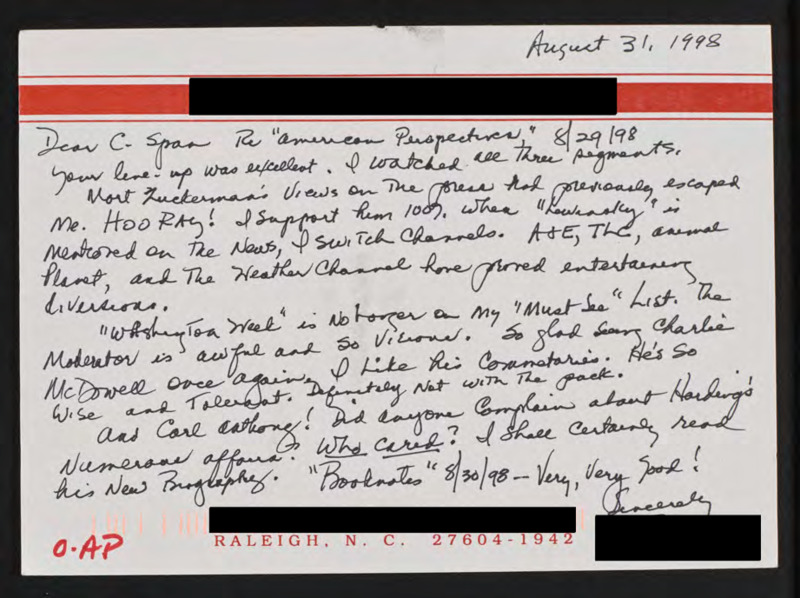 August 31, 1998
Dear C-Span Re "American Perspectives," 8/29/98
Your line-up was excellent. I watched all three segments.
Mort Zuckerman's Views on the press had previously escaped
Me. HOORAy! I support him 100%. When "Lewinsky" is
Mentioned on the News, I switch Channels. A&E, TLC, animal
Planet, and The Weather Channel have proved entertaining
diversions.
"WAshington Week" is No longer on My "Must See" List. The
Moderator is awful and so Vicious. So glad seeing Charlie
McDowell once again, I Like his Commentaries. He's So
Wise and Tolerant. Definitely Not with The pack.
And Carl Anthony! Did anyone Complain about Harding's
Numerous affairs? Who cared? I Shall Certainly read
his New Biography. "Booknotes" 8/30/98 – Very, Very Good!
Sincerely
O-AP
RALEIGH, N. C. 27604-1942